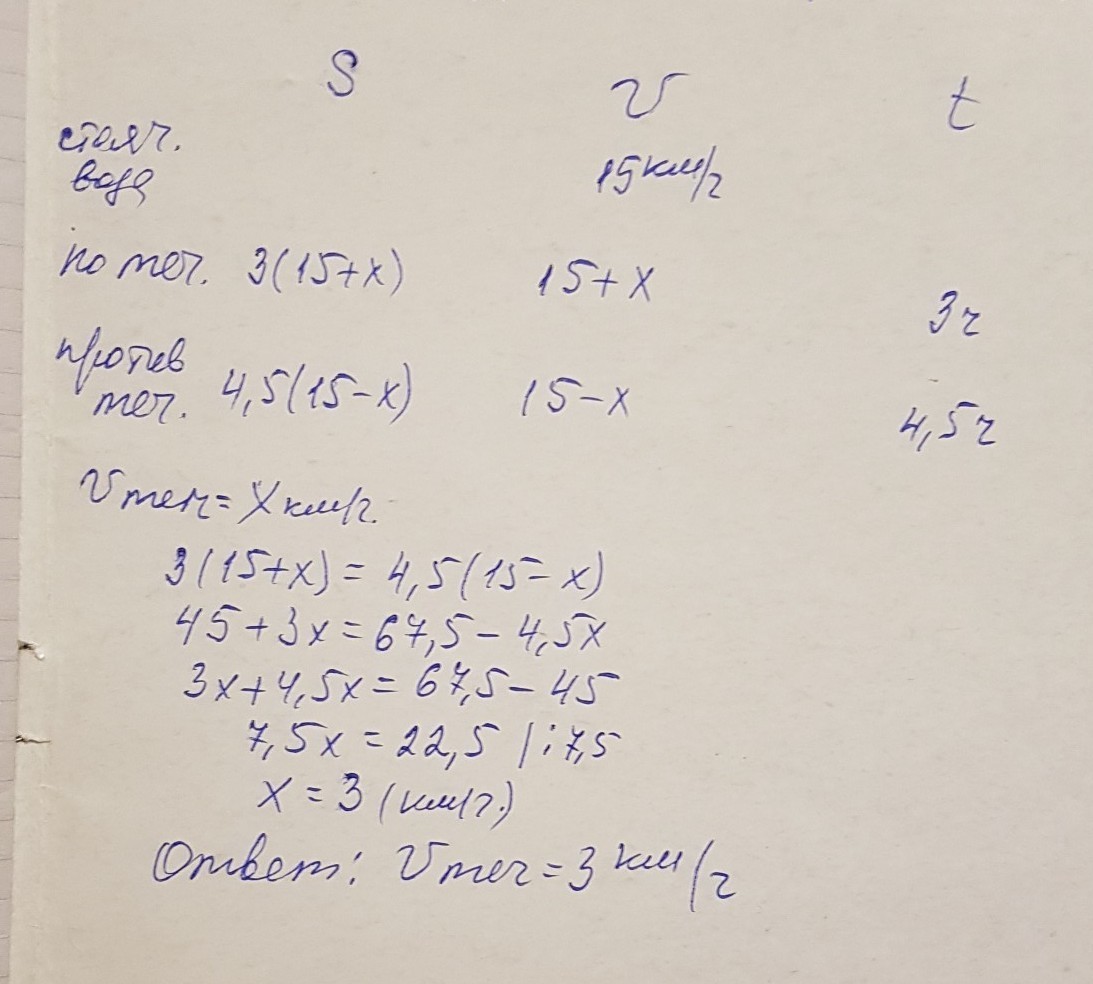 S v t
стояч.
вода 15 км/ч
по теч. 3(15+x) 15+x 3ч
против
теч. 4,5(15-x) 15-x 4,5ч
Vтеч = X км/ч.
3(15+x) = 4,5(15-x)
45+3x = 67,5-4,5x
3x+4,5x = 67,5-45
7,5x = 22,5 |:7,5
x = 3 (км/ч.)
Ответ: Vтеч = 3 км/ч